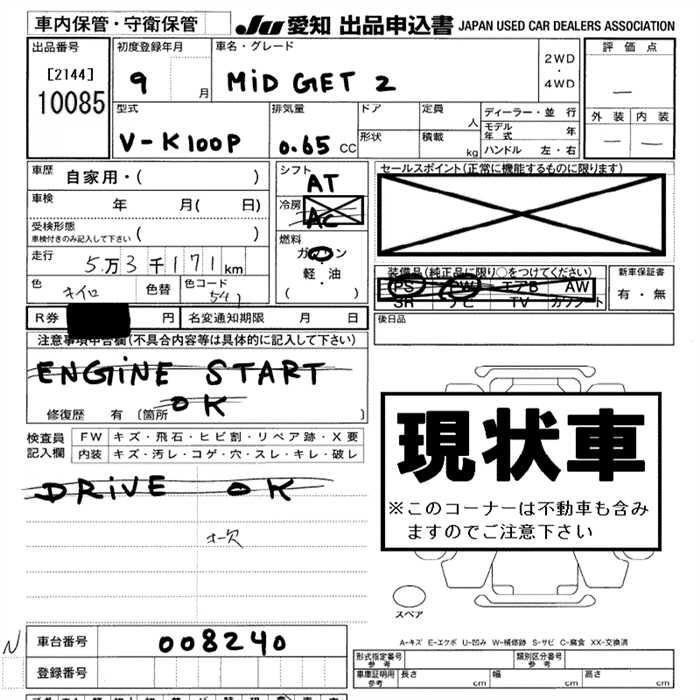 車内保管・守衛保管
JU 愛知 出品申込書 JAPAN USED CAR DEALERS ASSOCIATION
出品番号
[2144]
10085
初度登録年月
9 月
車名・グレード
MiD GET 2
2WD
・
4WD
評価点
—
外装 内装
— —
型式
V-K100P
排気量
0.65 CC
ドア
形状
定員
人
積載
kg
ディーラー・並行
モデル年式 年
ハンドル 左・右
車歴 自家用・( )
車検 年 月( 日)
受検形態
車検付きのみ記入して下さい ( )
走行 5万3千171km
色 キイロ
色替
色コード 541
R券 円
名変通知期限 月 日
シフト
AT
冷房
AC
燃料
ガソリン
・
軽・油
( )
セールスポイント(正常に機能するものに限ります)
装備品(純正品に限り○をつけてください)
PS PW エアB AW
SR ナビ TV カワシート
新車保証書
有・無
後日品
注意事項申告欄(不具合内容等は具体的に記入して下さい)
ENGiNE START
OK
修復歴 有〔箇所 〕
検査員
記入欄
FW キズ・飛石・ヒビ割・リペア跡・X要
内装 キズ・汚レ・コゲ・穴・スレ・キレ・破レ
DRiVE OK
オー欠
現状車
※このコーナーは不動車も含み
ますのでご注意下さい
スペア
A-キズ E-エクボ U-凹み W-補修跡 S-サビ C-腐食 XX-交換済
N
車台番号 008240
登録番号
形式指定番号
参考
類別区分番号
参考
車庫証明用
参考
長さ cm
幅 cm
高さ cm